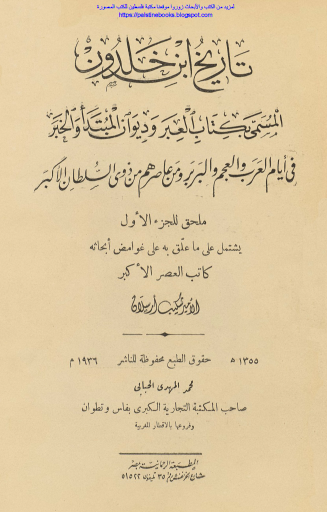 لمزيد من الكتب والأبحاث زوروا موقعنا مكتبة فلسطين للكتب المصورة
https://palstinebooks.blogspot.com
تاريخ ابن خلدون
المسمى بكتاب العبر وديوان المبتدأ والخبر
في أيام العرب والعجم والبربر ومن عاصرهم من ذوي السلطان الأكبر
ملحق للجزء الأول
يشتمل على ما علق به على غوامض أبحاثه
كاتب العصر الأكبر
الأمير شكيب أرسلان
١٣٥٥ هـ حقوق الطبع محفوظة للناشر ١٩٣٦ م
محمد المهدي الحبابي
صاحب المكتبة التجارية الكبرى بفاس وتطوان
وفروعها بالأقطار المغربية
المطبعة الرحمانية بمصر
شارع الخرنفش رقم ٣٥ تليفون ٥١٥٢٢